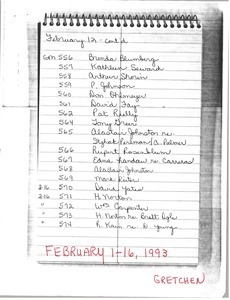 February 12 - cont'd
GM 556 Brenda Blumberg
557 Kathleen Seward
558 Arthur Shorin
559 P. Johnson
560 Don Ohlmeyer
561 David Fay
562 Pat Reilly
564 Tony Greer
565 Alastair Johnston re:
Itzhak Perlman/A. Palmer
566 Rupert Rosenblum
567 Edna Landau re: Carreras
568 Alastair Johnston
569 Mark
2-16 570 David Yates
2-16 571 H. Norton
" 572 Wm Carpenter
" 573 H. Norton re: Brett
" 574 A. Kain re: D. Young
FEBRUARY 1-16, 1993
GRETCHEN